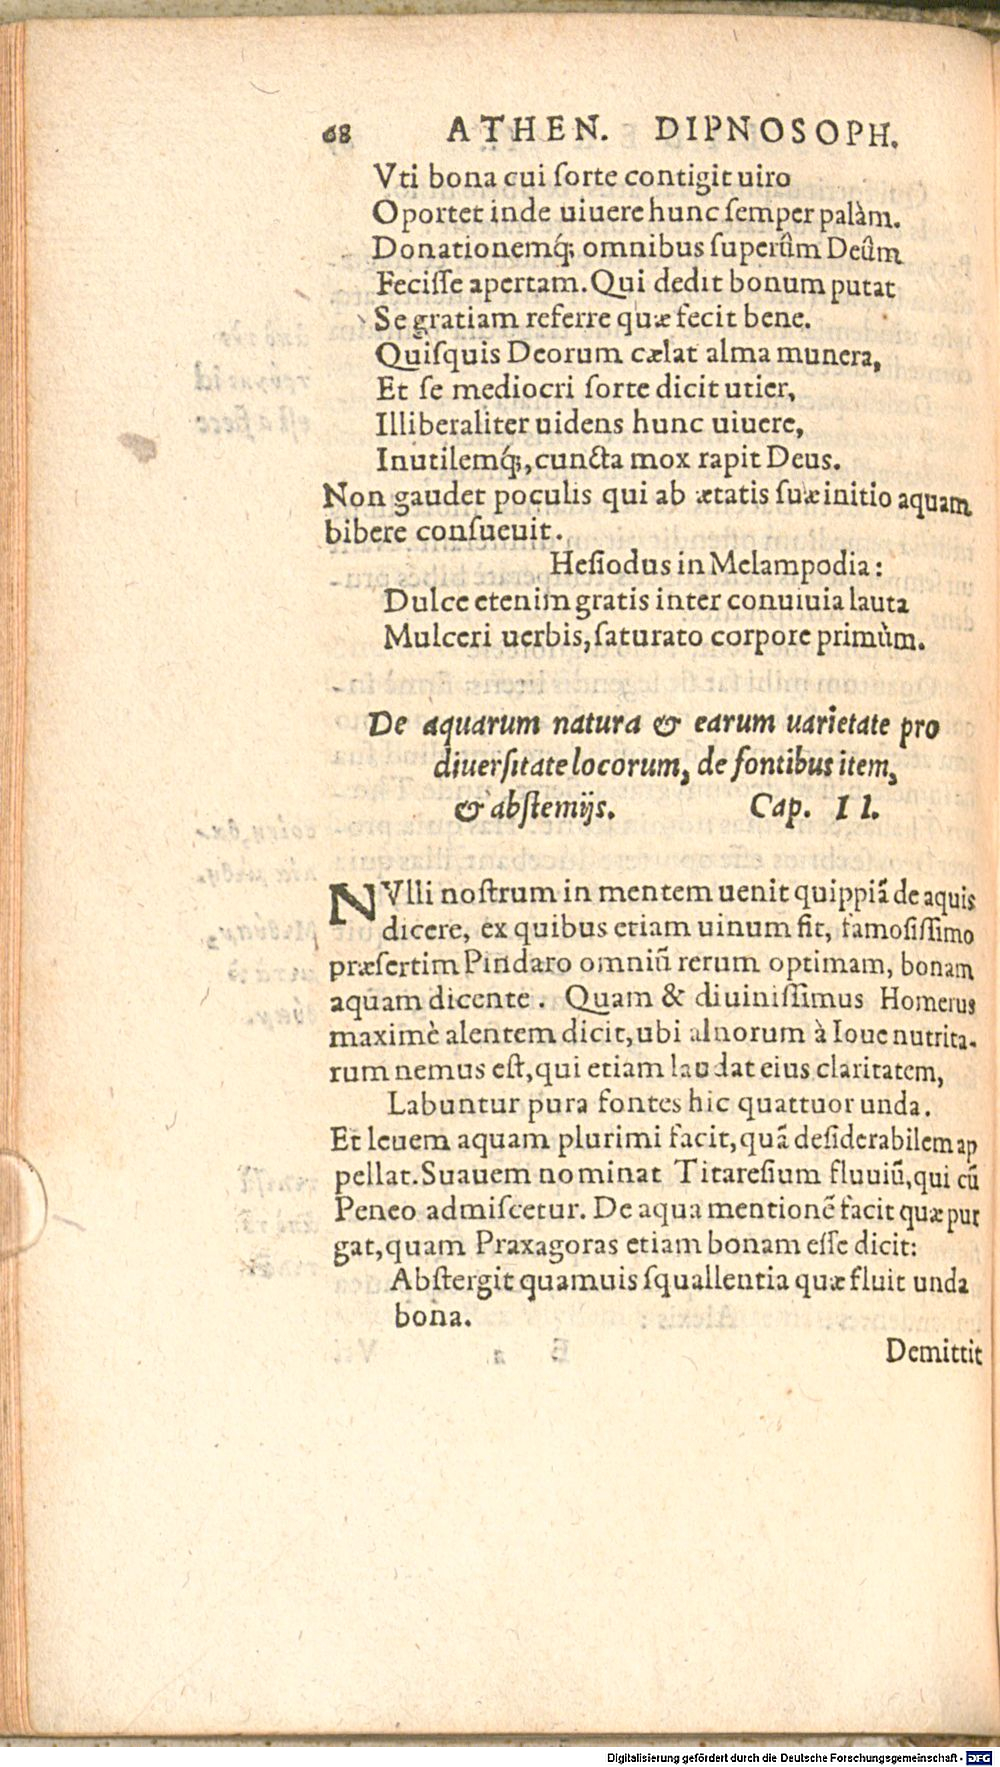 68 ATHEN. DIPNOSOPH.
Vti bona cui ſorte contigit uiro
Oportet inde uiuere hunc ſemper palàm.
Donationemq́; omnibus ſuperûm Deûm
Feciſſe apertam. Qui dedit bonum putat
Se gratiam referre quæ fecit bene.
Quiſquis Deorum cælat alma munera,
Et ſe mediocri ſorte dicit utier,
Illiberaliter uidens hunc uiuere,
Inutilemq́;, cuncta mox rapit Deus.
Non gaudet poculis qui ab ætatis ſuæ initio aquam
bibere conſueuit.
Heſiodus in Melampodia:
Dulce etenim gratis inter conuiuia lauta
Mulceri uerbis, ſaturato corpore primùm.
De aquarum natura & earum uarietate pro
diuerſitate locorum, de fontibus item,
& abſtemijs. Cap. II.
NVlli noſtrum in mentem uenit quippiã de aquis
dicere, ex quibus etiam uinum fit, famoſiſſimo
præſertim Pindaro omniũ rerum optimam, bonam
aquam dicente. Quam & diuiniſſimus Homerus
maximè alentem dicit, ubi alnorum à Ioue nutrita-
rum nemus eſt, qui etiam laudat eius claritatem,
Labuntur pura fontes hic quattuor unda.
Et leuem aquam plurimi facit, quã deſiderabilem ap
pellat. Suauem nominat Titareſium fluuiũ, qui cũ
Peneo admiſcetur. De aqua mentionẽ facit quæ pur
gat, quam Praxagoras etiam bonam eſſe dicit:
Abſtergit quamuis ſquallentia quæ fluit unda
bona.
Demittit
Digitalisierung gefördert durch die Deutsche Forschungsgemeinschaft - DFG